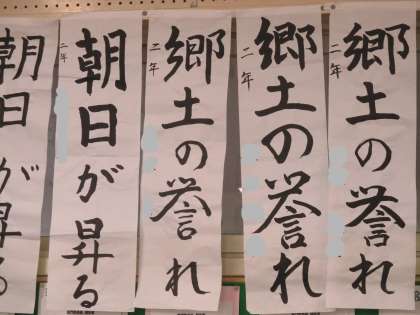 郷土の誉れ
二年
郷土の誉れ
二年
郷土の誉れ
二年
朝日が昇る
二年
朝日が昇る